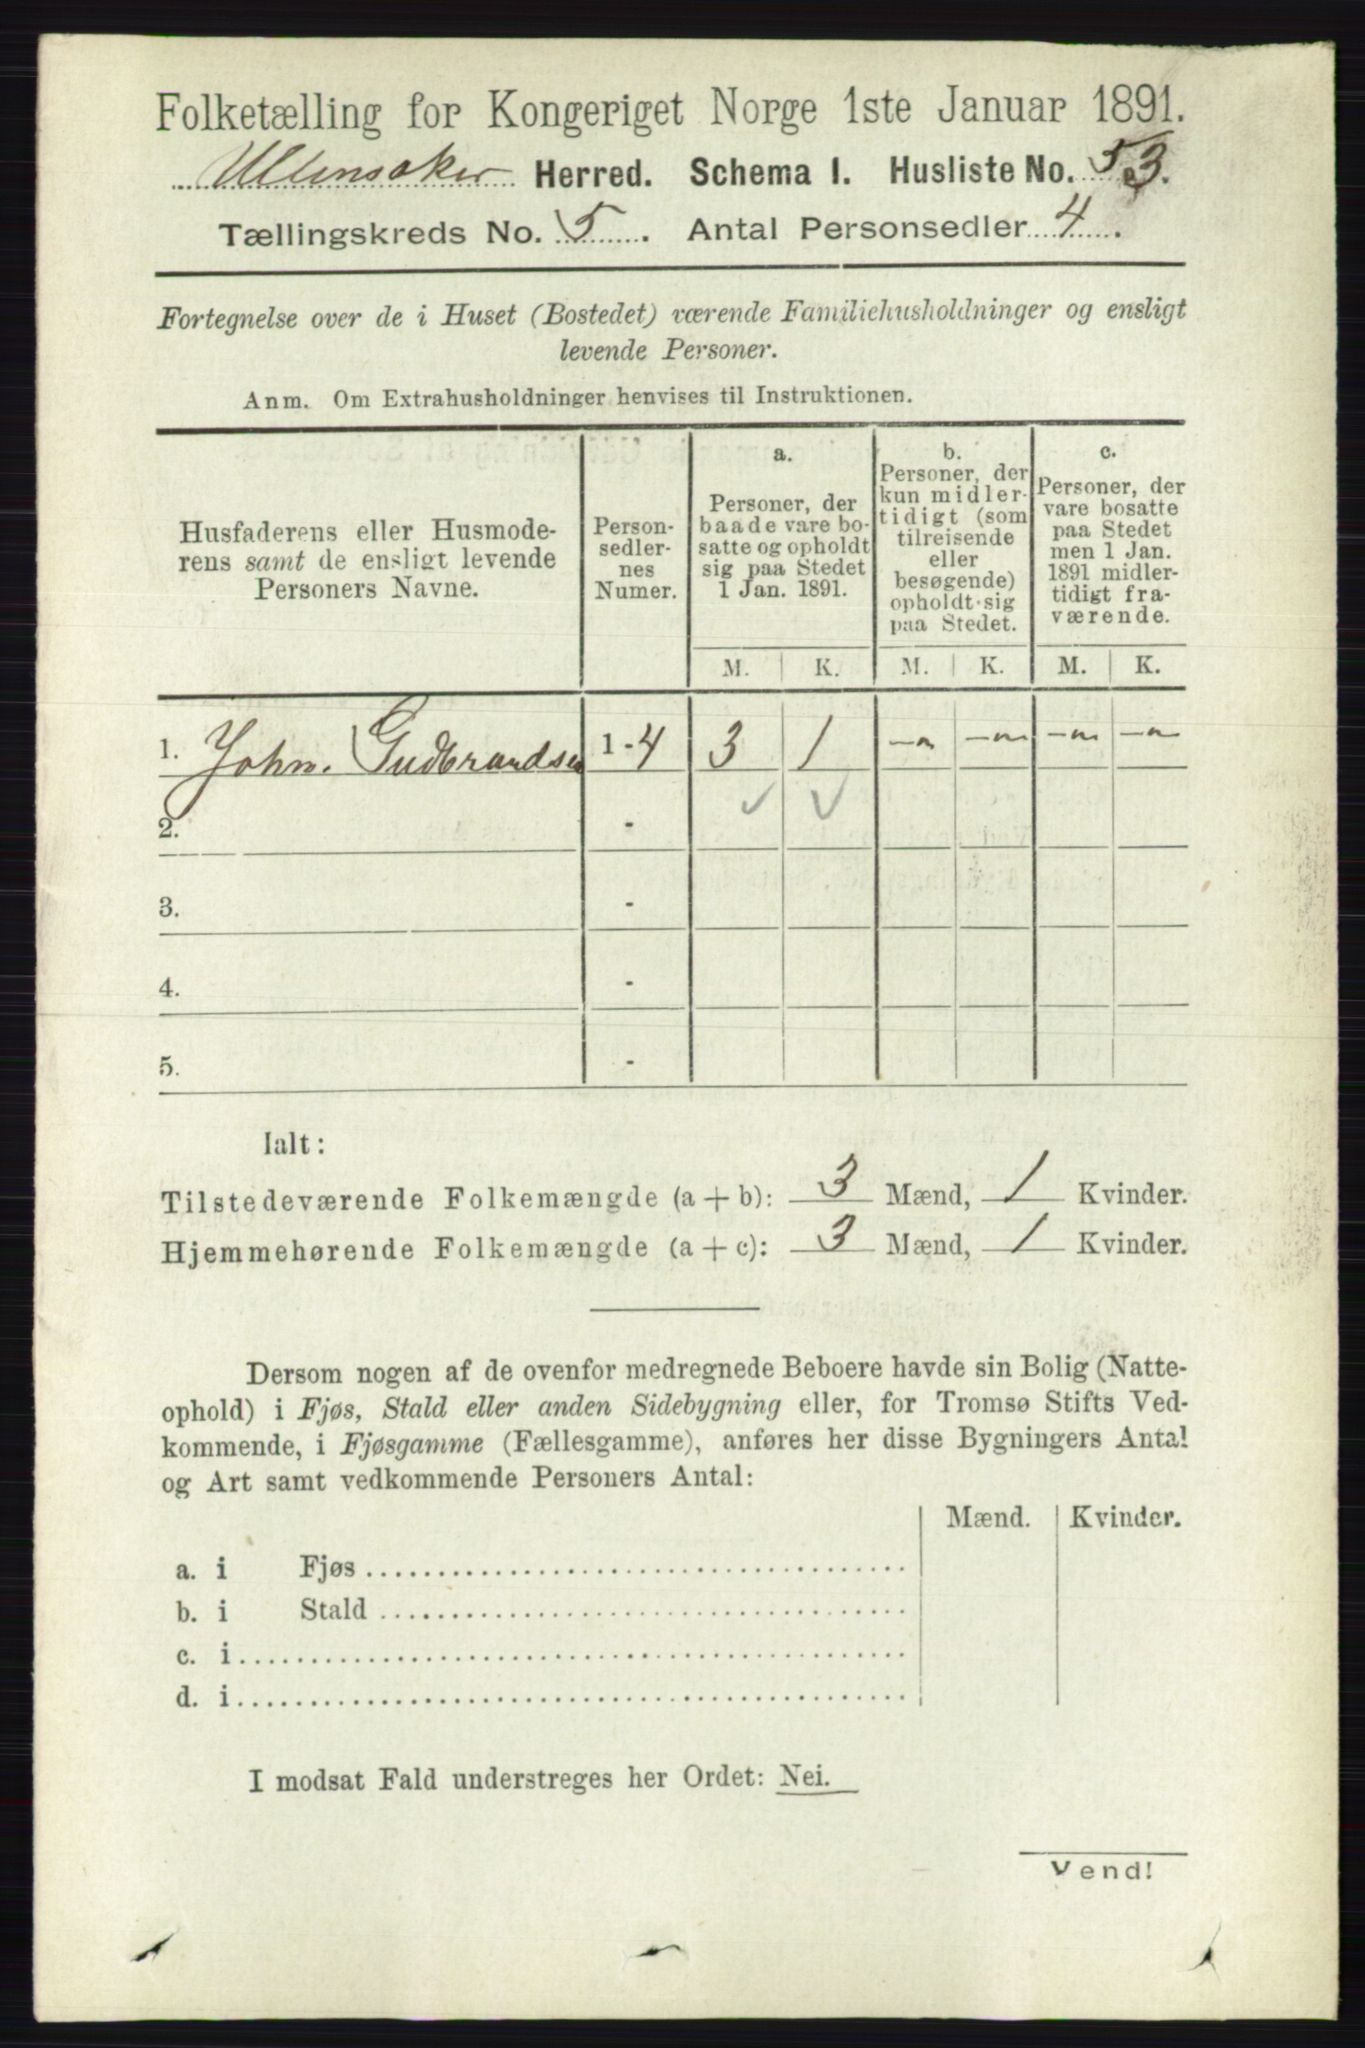 Folketælling for Kongeriget Norge 1ste Januar 1891.
Ullensaker Herred. Schema I. Husliste No. 53.
Tællingskreds No. 5. Antal Personsedler 4.
Fortegnelse over de i Huset (Bostedet) værende Familiehusholdninger og ensligt
levende Personer.
Anm. Om Extrahusholdninger henvises til Instruktionen.
Husfaderens eller Husmode-
rens samt de ensligt levende
Personers Navne.
Person-
sedler-
nes
Numer.
a.
Personer, der
baade vare bo-
satte og opholdt
sig paa Stedet
1 Jan. 1891.
b.
Personer, der
kun midler-
tidigt (som
tilreisende
eller
besøgende)
opholdt sig
paa Stedet.
c.
Personer, der
vare bosatte
paa Stedet
men 1 Jan.
1891 midler-
tidigt fra-
værende.
M. K. M. K. M. K.
1. John. Gudbrandsen 1-4 3 1 — — — —
2. -
3. -
4. -
5. -
Ialt:
Tilstedeværende Folkemængde (a+b): 3 Mænd, 1 Kvinder.
Hjemmehørende Folkemængde (a+c): 3 Mænd, 1 Kvinder.
Dersom nogen af de ovenfor medregnede Beboere havde sin Bolig (Natte-
ophold) i Fjøs, Stald eller anden Sidebygning eller, for Tromsø Stifts Ved-
kommende, i Fjøsgamme (Fællesgamme), anføres her disse Bygningers Antal
og Art samt vedkommende Personers Antal:
Mænd. Kvinder.
a. i Fjøs
b. i Stald
c. i
d. i
I modsat Fald understreges her Ordet: Nei.
Vend!